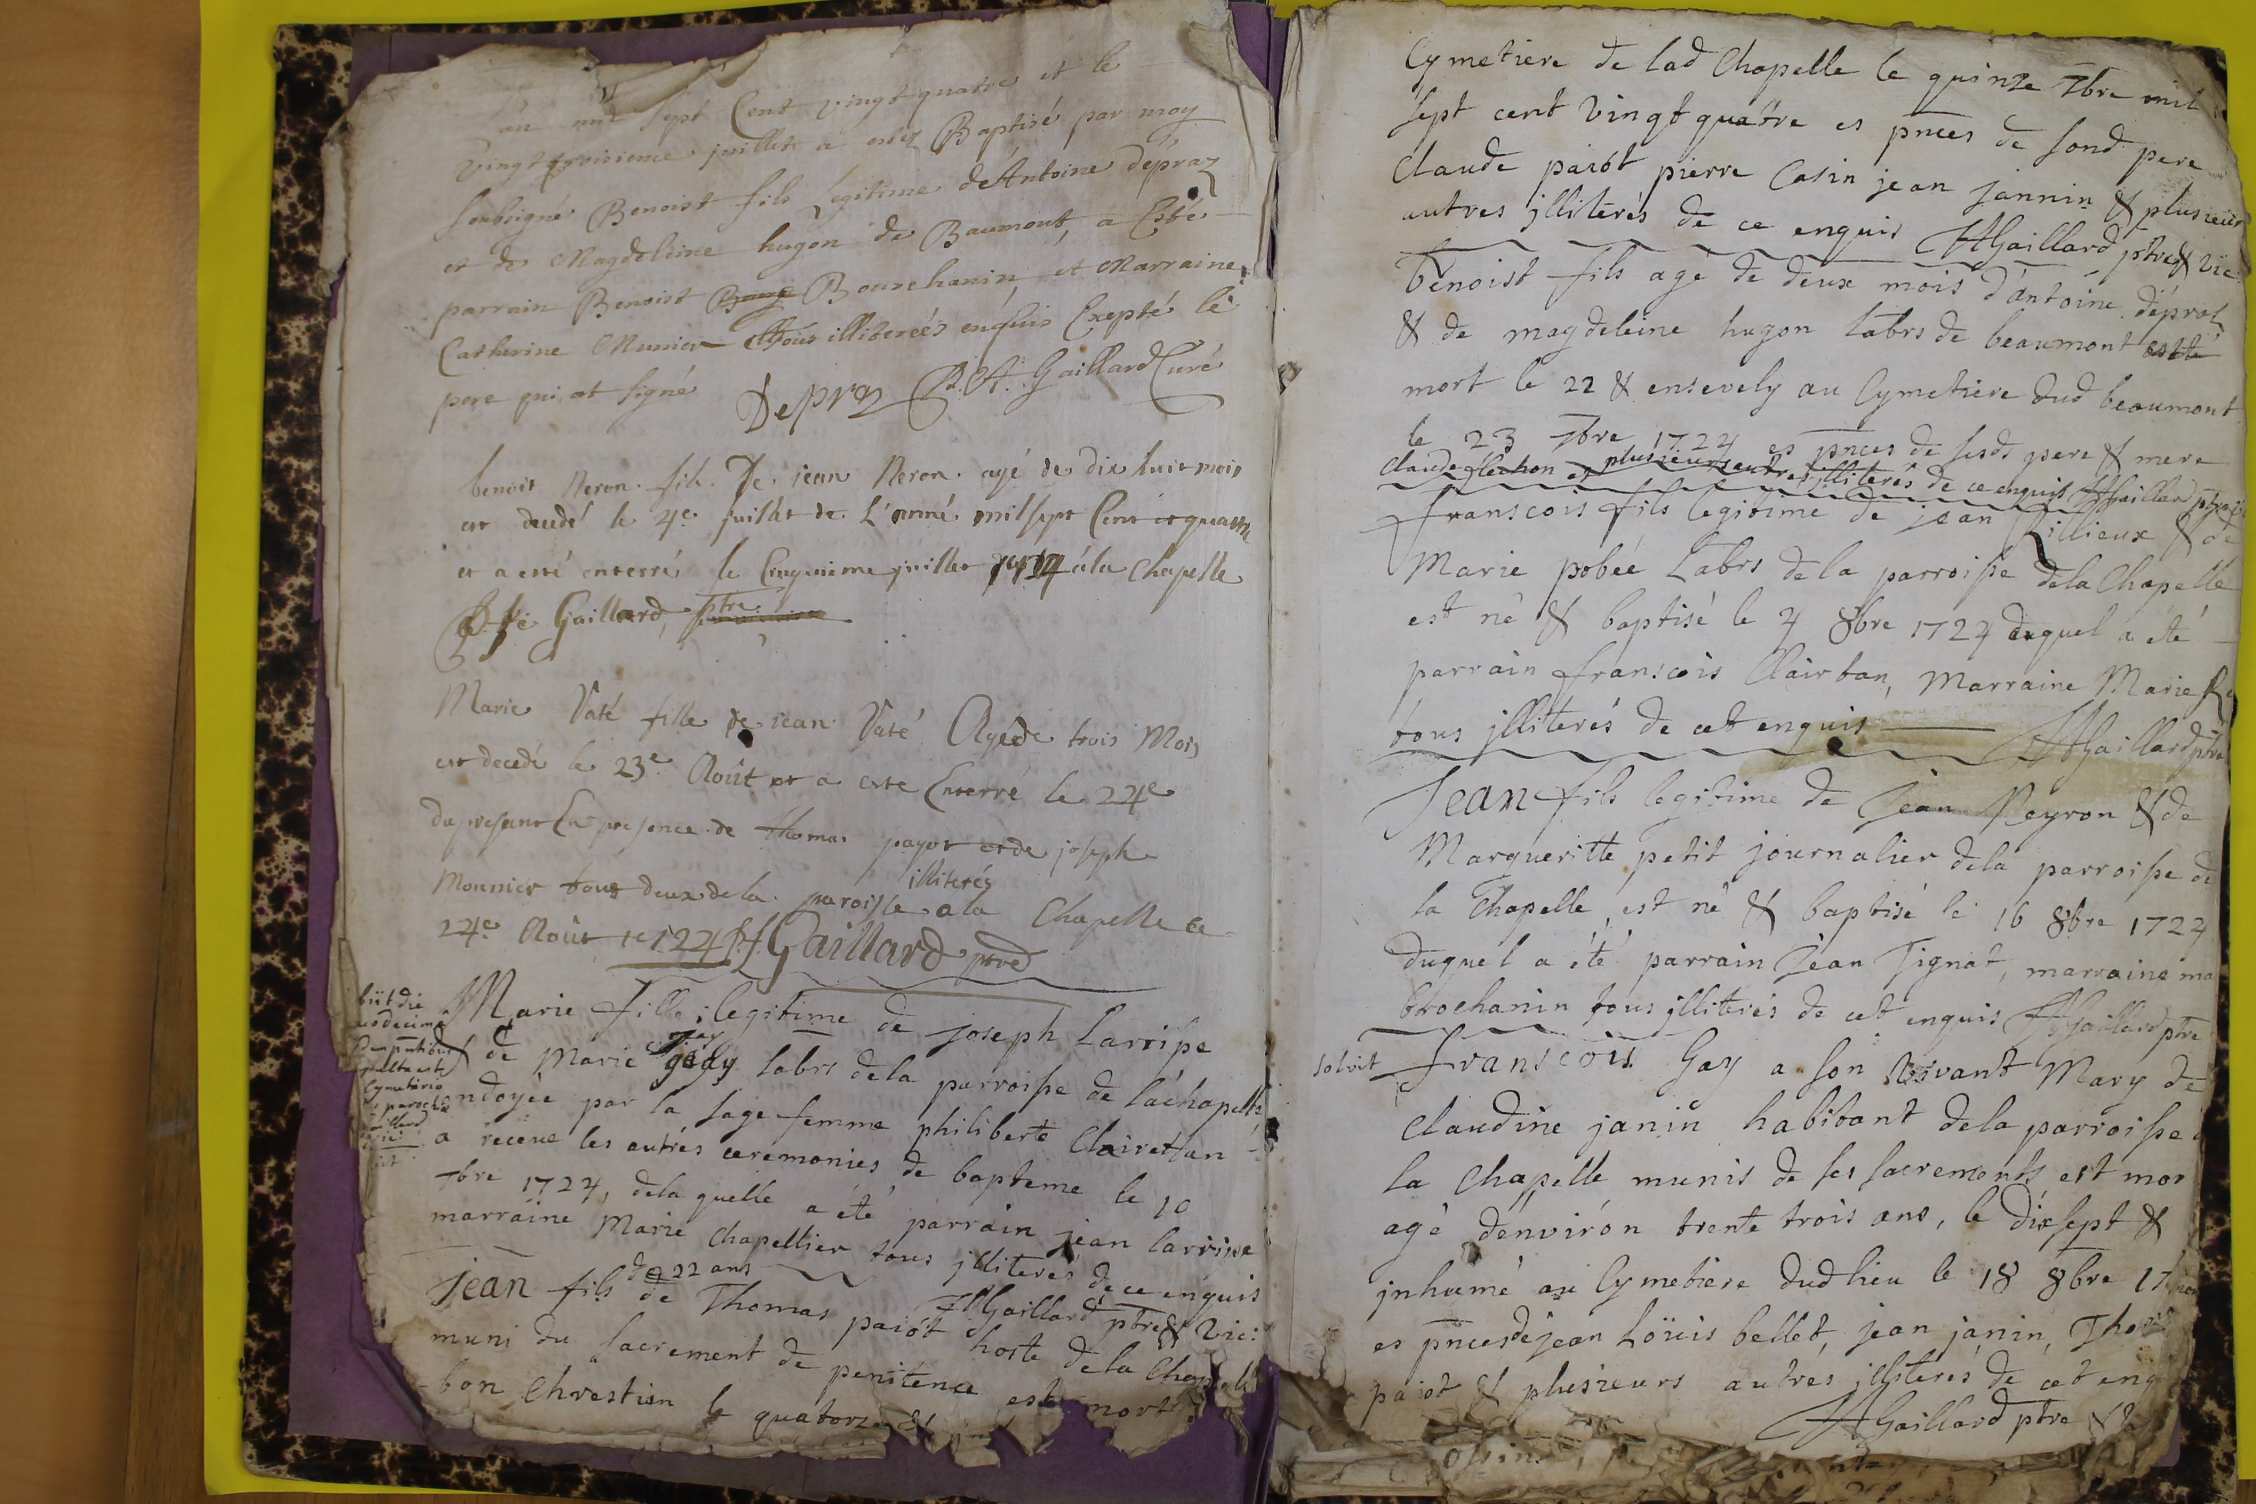 L'an mil sept Cent vingt quatre et le
vingt troisieme juillet a estez Baptisé par moy
soubsigné Benoist fils Legitime de Antoine depraz
et de Magdeleine hugon de Baumont, a Esté
parrain Benoist Bourchanin et Marraine
Catherine Munier Tous illiterés enquis Exepté le
pere qui at signé Depraz B. A. Gaillard Curé
benoit Neron fils De jean Neron agé de dix huit mois
est decedé le 4e juillet de L'anné mil sept Cent
et a esté enterré le Cinquieme juillet a la Chapelle
Gaillard, ptre
Marie Vaté fille de jean Vaté Agéde trois Mois
est decedé le 23e Août et a este Enterré le 24e
du present En presence de thomas payot et de joseph
Monnier tous deux de la paroisse a la Chapelle ce
illiterés
24e Août 1724 Gaillard ptre
Marie fille legitime de joseph Larripe
& de Marie labrs de la parroisse de lachapelle
ondoyée par la sage femme philiberte Clairetban
a receue les autrés ceremonies de bapteme le 10
7bre 1724, dela quelle a été parrain jean larripe
marraine Marie Chapellier tous jlliterés de ce enquis
HGaillard ptre & Vic:
Jean fils de Thomas paiót hoste de la Chapelle
de 22 ans
muni du sacrement de penitence est mort
bon Chrestien le quatorze &
Cymetiere de lad Chapelle le quinze 7bre mil
sept cent vingt quatre es pnces de sond pere
Claude paiót pierre Casin jean jannin & plusieurs
autres jlliterés de ce enquis HGaillard ptre & vic
benoist fils agé de deux mois d'antoine depral
& de magdeleine hugon labrs de beaumont
mort le 22 & ensevely au Cymetiere dud beaumont
le 23 7bre 1724 es pnces de sesds pere & mere
Claude flechon et plusieurs autres jlliterés de ce enquis HGaillard ptre
franscois fils legitime de jean Rillieux & de
Marie pobéé Labrs de la parroisse dela Chapelle
est né & baptisé le 4 8bre 1724 duquel a été
parrain franscois Clairban, Marraine Marie
tous jlliterés de cet enquis HGaillard ptre
Jean fils legitime de Jean Neyron & de
Margueritte petit journalier dela parroisse de
la Chapelle, est né & baptisé le 16 8bre 1724
duquel a été parrain Jean Tignat, marraine ma
brochanin tous jlliterés de cet enquis HGaillard ptre
solvit
franscois Gay a son vivant Mary de
Claudine janin habitant dela parroisse
la Chapelle munis de ses sacrements est mor
agé d'environ trente trois ans, le dixsept &
jnhumé au Cymetiere dud lieu le 18 8bre
es pnces de jean Loüis bellet, jean janin, Tho
paiot & plusieurs autres jlliterés de cet enq
HGaillard ptre &